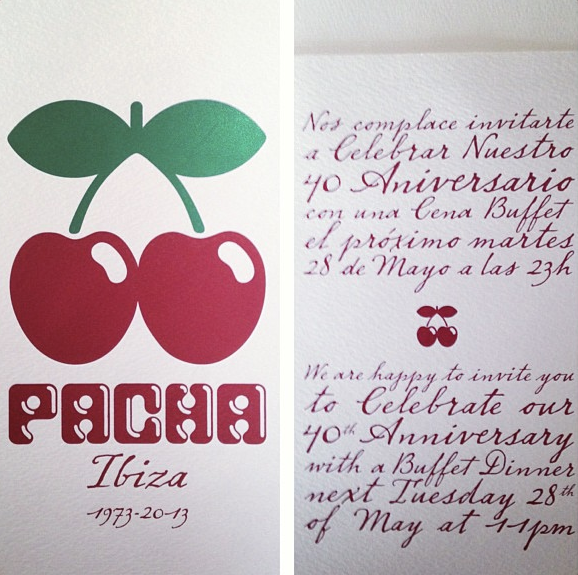 PACHA
Ibiza
1973-2013
Nos complace invitarte
a Celebrar Nuestro
40 Aniversario
con una Cena Buffet
el próximo martes
28 de Mayo a las 23h
We are happy to invite you
to Celebrate our
40th Anniversary
with a Buffet Dinner
next Tuesday 28th
of May at 11pm